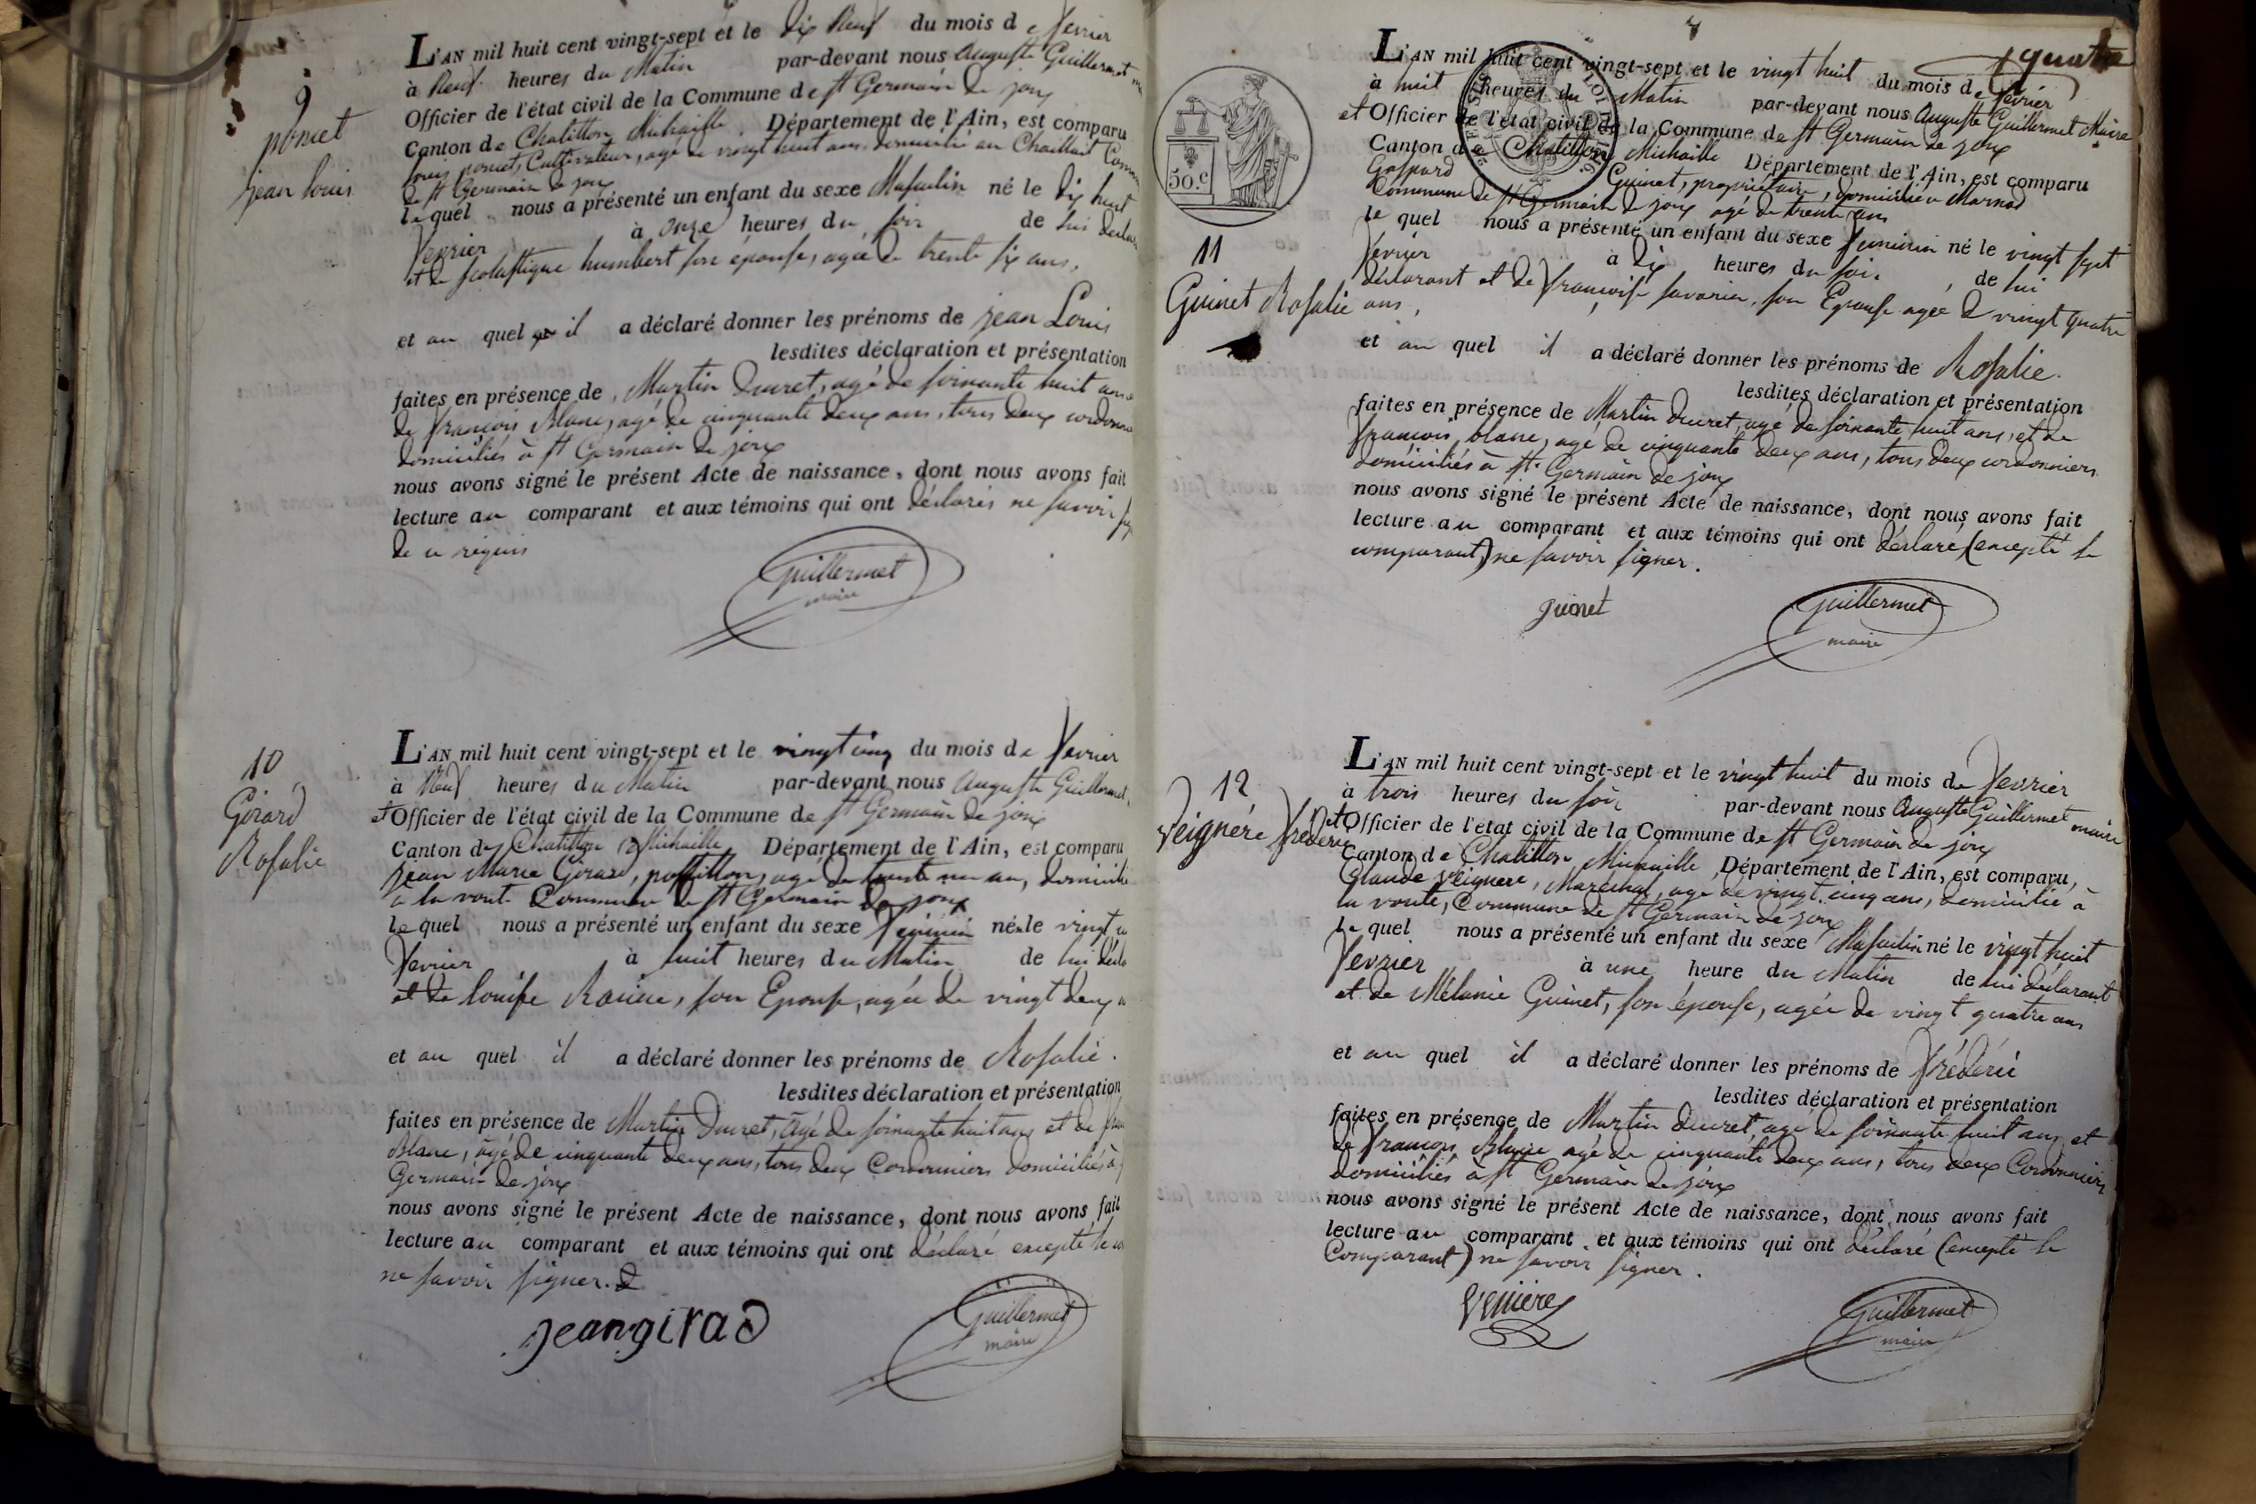 9
poncet
jean Louis
L'AN mil huit cent vingt-sept et le Dix Neuf du mois de fevrier
à Neuf heures du Matin par-devant nous Auguste Guillermet
Officier de l'état civil de la Commune de St Germain de joux
Canton de Chatillon Michaille, Département de l'Ain, est comparu
Louis poncet, Cultivateur, agé de vingt huit ans, domicilié au
de St Germain de joux
lequel nous a présenté un enfant du sexe Masculin né le Dix huit
fevrier à onze heures du soir de lui
et de scolastique humbert son épouse, agée de trente six ans,
et au quel il a déclaré donner les prénoms de jean Louis
lesdites déclaration et présentation
faites en présence de Martin Ducret, agé de soixante huit ans
de françois Blanc, agé de cinquante deux ans, tous deux
domiciliés à St Germain de joux
nous avons signé le présent Acte de naissance, dont nous avons fait
lecture au comparant et aux témoins qui ont déclarés ne savoir
de ce requis
Guillermet
maire
10
Girard
Rosalie
L'AN mil huit cent vingt-sept et le vingt cinq du mois de fevrier
à Neuf heures du Matin par-devant nous Auguste Guillermet
et Officier de l'état civil de la Commune de St Germain de joux
Canton de Chatillon Michaille Département de l'Ain, est comparu
jean Marie Girard, postillon, agé de trente un an,
à la voute Commune de St Germain de joux
lequel nous a présenté un enfant du sexe féminin né le vingt
fevrier à huit heures du Matin de lui
et de Louise son Epouse, agée de vingt deux
et au quel il a déclaré donner les prénoms de Rosalie.
lesdites déclaration et présentation
faites en présence de Martin Ducret, Agé de soixante huit ans et de
Blanc, âgé de cinquante deux ans, tous deux Cordonniers domiciliés à
Germain de joux
nous avons signé le présent Acte de naissance, dont nous avons fait
lecture au comparant et aux témoins qui ont déclaré excepté le
ne savoir signer.
jeangirad
Guillermet
maire
4
quatre
50.c
11
Guinet Rosalie
L'AN mil huit cent vingt-sept et le vingt huit du mois de fevrier
à huit heures du Matin par-devant nous Auguste Guillermet Maire
et Officier de l'état civil de la Commune de St Germain de joux
Canton de Chatillon Michaille Département de l'Ain, est comparu
Gaspard Guinet, propriétaire, domicilié à Marnod
Commune de St Germain de joux agé de trente ans
le quel nous a présenté un enfant du sexe feminin né le vingt sept
fevrier à Dix heures du soir, de lui
déclarant et de françoise savarin, son Epouse agée de vingt quatre
ans,
et au quel il a déclaré donner les prénoms de Rosalie.
lesdites déclaration et présentation
faites en présence de Martin Ducret, agé de soixante huit ans, et de
françois blanc, agé de cinquante deux ans, tous deux cordonniers
domiciliés à St Germain de joux
nous avons signé le présent Acte de naissance, dont nous avons fait
lecture au comparant et aux témoins qui ont déclaré (excepté le
comparant) ne savoir signer.
guinet
Guillermet
maire
12
Veignére fréderic
L'AN mil huit cent vingt-sept et le vingt huit du mois de fevrier
à trois heures du soir par-devant nous Auguste Guillermet maire
et Officier de l'état civil de la Commune de St Germain de joux
Canton de Chatillon Michaille, Département de l'Ain, est comparu,
Claude Veignere, Maréchal, agé de vingt cinq ans, domicilié à
la voute, Commune de St Germain de joux
le quel nous a présenté un enfant du sexe Masculin né le vingt huit
fevrier à une heure du Matin de lui déclarant
et de Mélanie Guinet, son épouse, agée de vingt quatre ans
et au quel il a déclaré donner les prénoms de frédéric
lesdites déclaration et présentation
faites en présence de Martin Ducret, agé de soixante huit ans, et
de françois Blanc agé de cinquante deux ans, tous deux Cordonniers
domiciliés à St Germain de joux
nous avons signé le présent Acte de naissance, dont nous avons fait
lecture au comparant et aux témoins qui ont déclaré (excepté le
Comparant) ne savoir signer.
Guillermet
maire